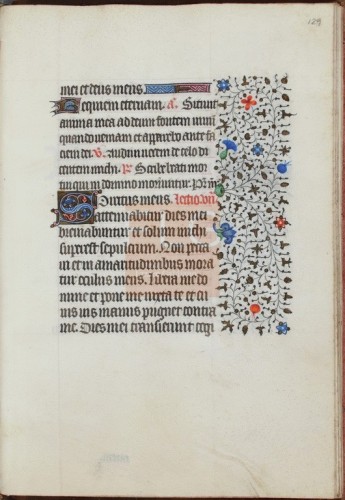 129
mei et deus meus.
Requiem eternam. a. Sitiuit
anima mea ad deum fontem uiuū
quando ueniam et apparebo ante fa
ciem dei. V. Audiui uocem de celo di
centem michi. R. Scribe beati mor
tui qui in domino moriuntur.
Spiritus meus. Lectio. vii
attenuabitur dies mei
breuiabuntur et solum michi
superest sepulcrum. Non pecca
ui et in amaritudinibus mora
tur oculus meus. Libera me do
mine et pone me iuxta te et cu
ius uis manus pugnet contra
me. Dies mei transierunt cogi